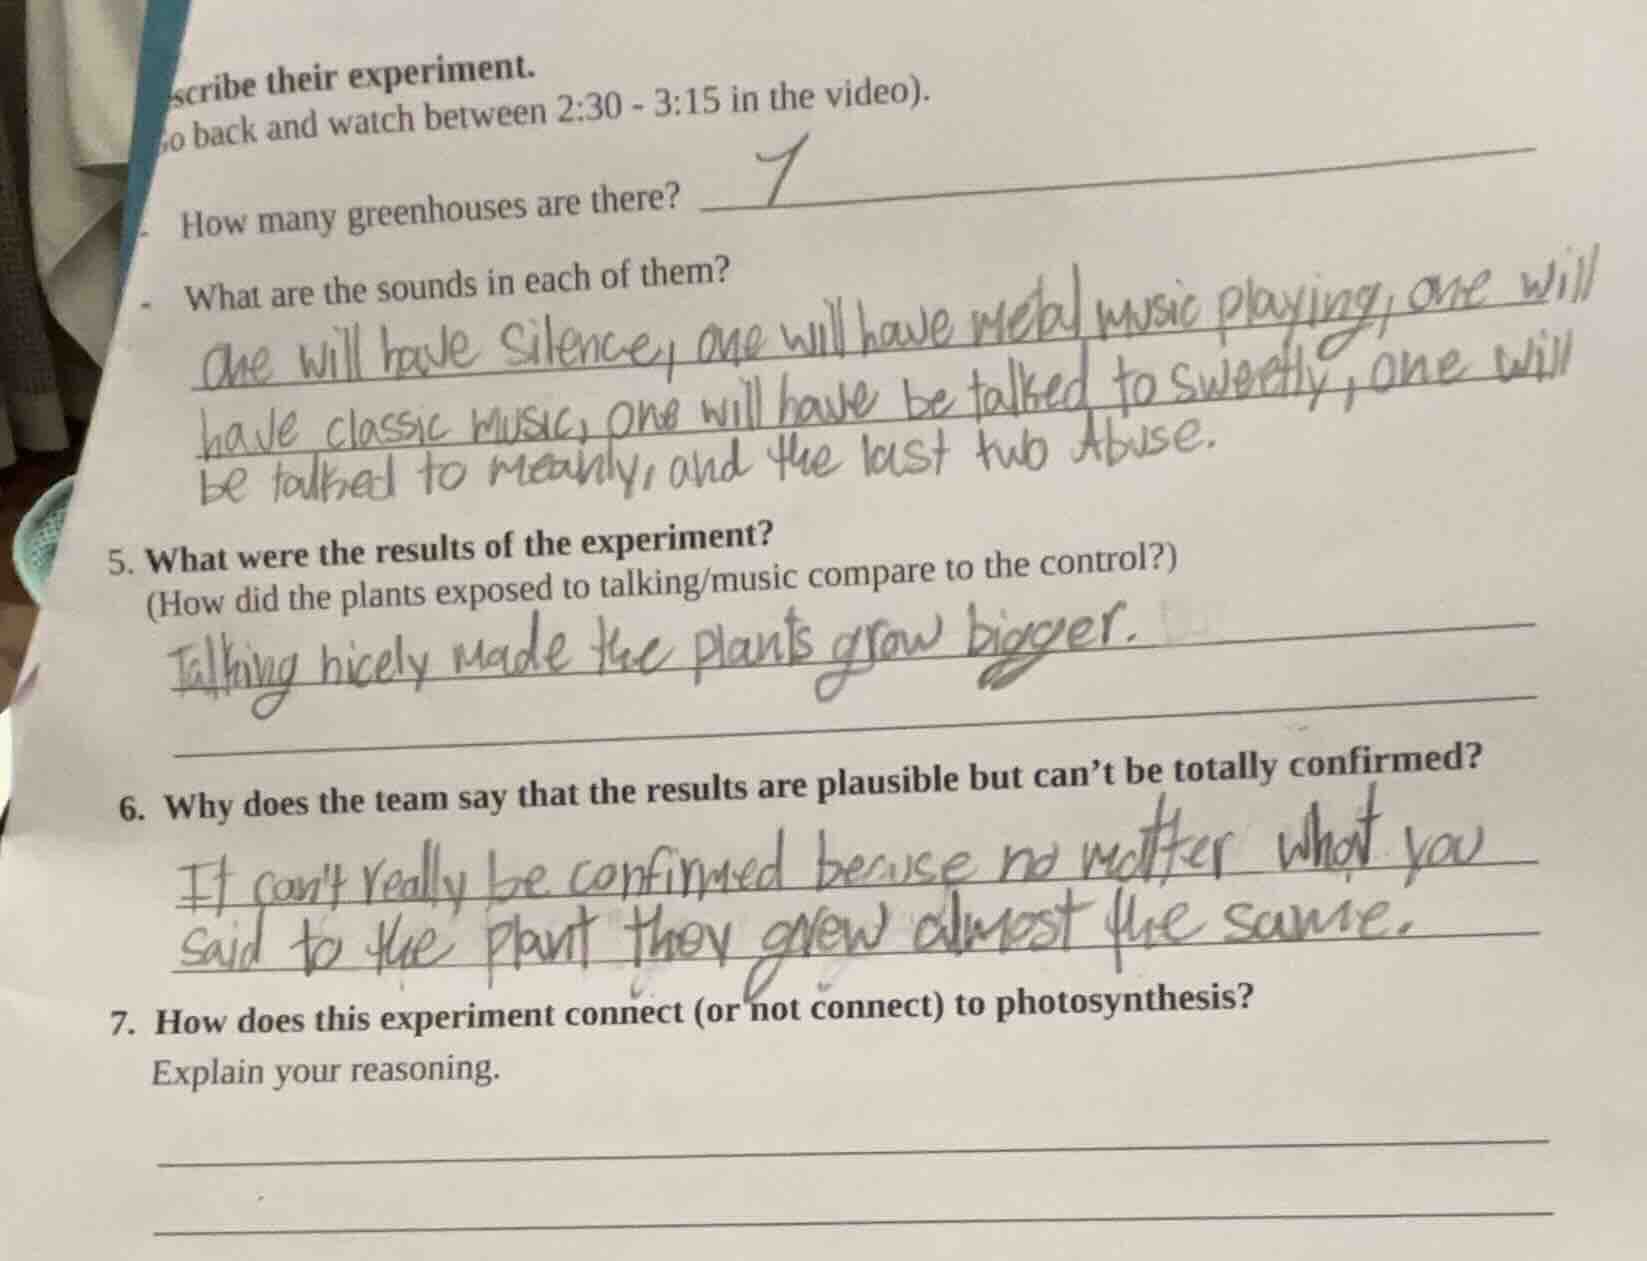 scribe their experiment.
o back and watch between 2:30 - 3:15 in the video).
- How many greenhouses are there? 7
- What are the sounds in each of them?
One will have Silence, one will have metal music playing, one will
have classic music, one will have be talked to sweetly, one will
be talked to meanly, and the last two Abuse.
5. What were the results of the experiment?
(How did the plants exposed to talking/music compare to the control?)
Talking nicely made the plants grow bigger.
6. Why does the team say that the results are plausible but can't be totally confirmed?
It can't really be confirmed becuse no matter what you
said to the plant they grew almost the same.
7. How does this experiment connect (or not connect) to photosynthesis?
Explain your reasoning.